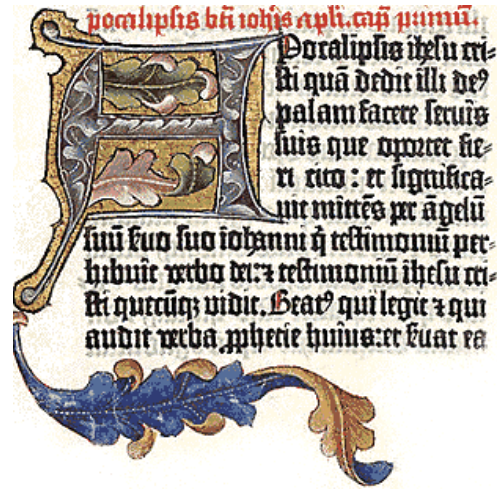 Apocalipsis bti iohis apli. capm primũ.
Apocalipsis ihesu cri=
sti quã dedit illi deꝰ
palam facere seruis
suis que oportet fie=
ri cito : et significa=
uit mittẽs per ãgelũ
suũ suo iohanni q̃ testimoniũ per=
hibuit verbo dei: ⁊ testimoniũ ihesu cri=
sti quecũqꝫ vidit. Beatꝰ qui legit ⁊ qui
audit verba ꝓphetie huius: et ea